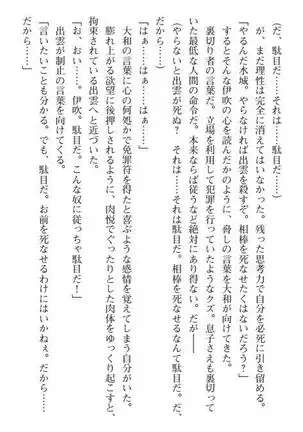 （だ、駄目だ……それは……駄目だ……）
が、まだ理性は完全に消えてはいなかった。残った思考力で自分を必死に引き留める。
「やるんだ水城。やらなければ出雲を殺すぞ。相棒を死なせたくはないだろう？」
するとそんな伊吹の心を読んだかのように、脅しの言葉を大和が向けてきた。
裏切り者の言葉だ。立場を利用して犯罪を行っていたようなクズ。息子さえも裏切って
いた最低な人間の命令だ。本来ならば従うなど絶対にあり得ない。だが――
（やらないと出雲が死ぬ？　それは……それは駄目だ。相棒を死なせるなんて駄目だ。だ、
だから……）
「はぁ……はぁ……はぁ……」
大和の言葉に心の何処かで免罪符を得たと喜ぶような感情を覚えてしまう自分がいた。
膨れ上がる欲望に後押しされるように、肉悦でぐったりとした肉体をゆっくり起こすと、
拘束されている出雲へと近づいた。
「お、おい……。伊吹。駄目だ。こんな奴に従っちゃ駄目だ！」
出雲が制止の言葉を向けてくる。
「言いたいことも分かる。でも、駄目だ。お前を死なせるわけにはいかねぇ。だから……
だから……」